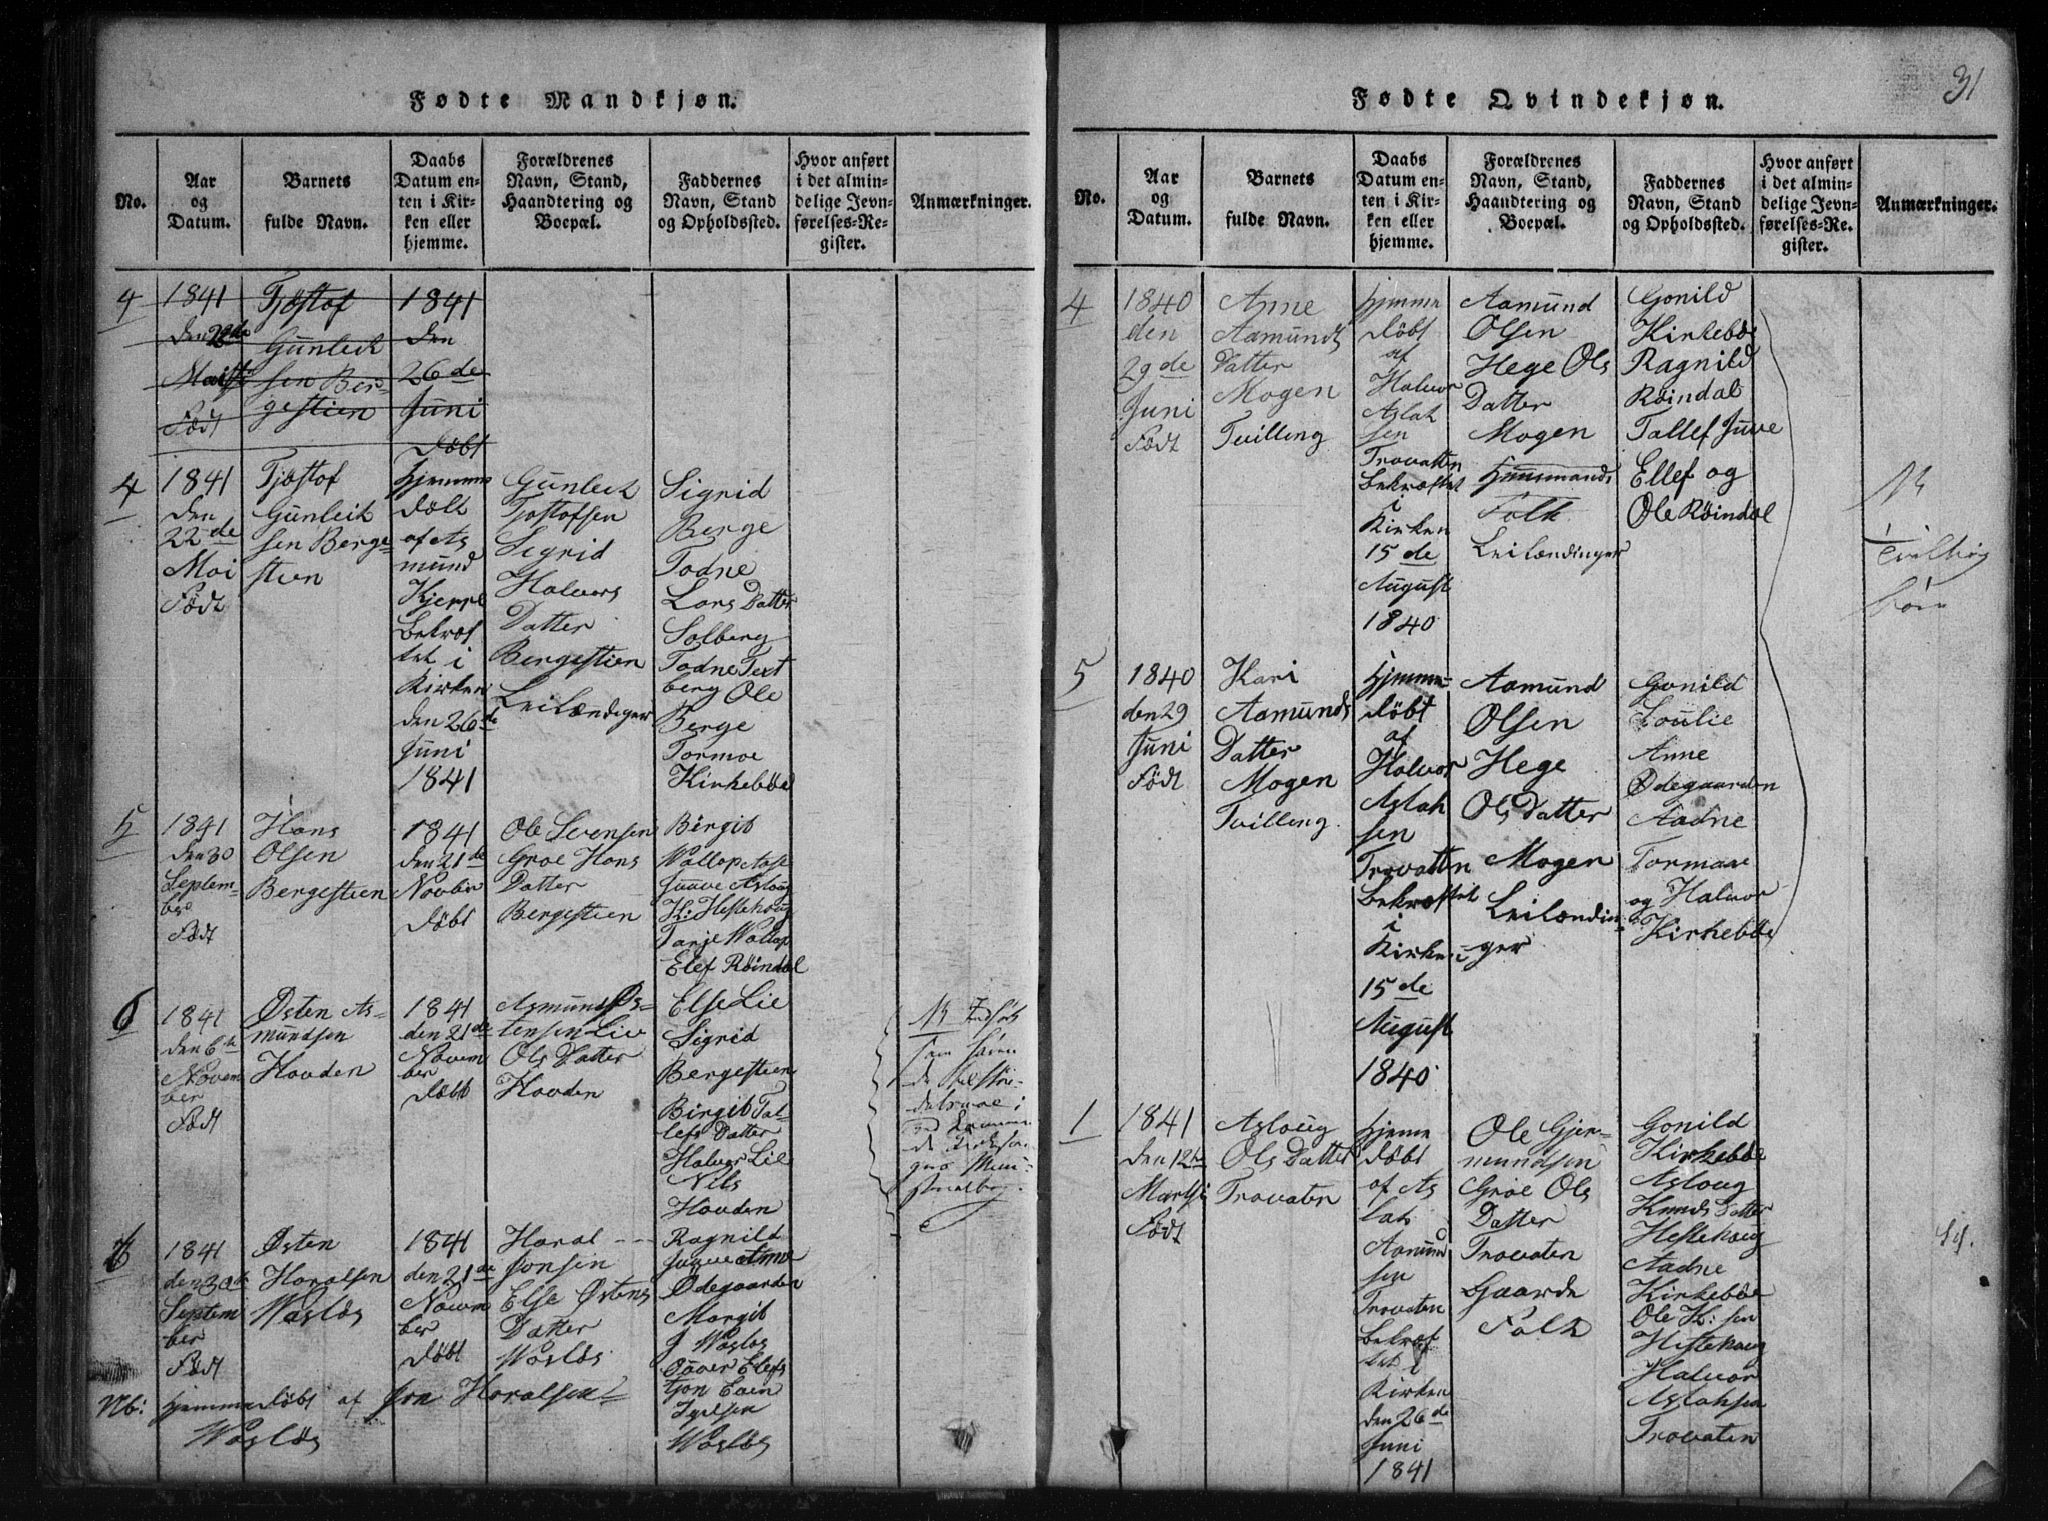 Fødte Mandkjøn.
No.
Aar
og
Datum.
Barnets
fulde Navn.
Daabs
Datum en-
ten i Kir-
ken eller
hjemme.
Forældrenes
Navn, Stand,
Haandtering og
Boepæl.
Faddernes
Navn, Stand
og Opholdssted.
Hvor anført
i det almin-
delige Jevn-
førelses-Re-
gister.
Anmærkninger.
4
1841
den 22de
Født
Tjøstof
Gunleik
sen Ber-
gestien
1841
den
26de
Juni
Døbt
4
1841
den
22de
Mai
Født
Tjøstof
Gunleik
sen Berge-
stien
Hjemme
døbt
af As
mund
Bekræf
tet i
Kirken
den 26de
Juni
1841
Gunleik
Tjostofsen
Sigrid
Halvors
Datter
Bergestien
Leilændiger
Sigrid
Berge
Todne
Lars Datter
Solberg
Todne
berg Ole
Berge
Tormoe
Kirkebøe
5
1841
den 30
Septem-
ber
Født
Hans
Olsen
Bergestien
1841
den 21de
Novber
Døbt
Ole Svensen
Groe Hans
Datter
Bergestien
Birgit
Wallop
Juuve Asloug
K: Hestehoug
Tarje Wallop
Elef Røindal
6
1841
den 6te
Novem
ber
Født
Østen As-
mundsen
Hovden
1841
den 21de
Novem
ber
Døbt
Asmund Øs-
tensen Liv
Ols Datter
Hovden
Else Lie
Sigrid
Bergestien
Birgit Tal-
lefs Datter
Halvor Lie
Nils
Hovden
NB
1841
den 30te
Septem
ber
Født
Østen
Haralsen
Waslös
1841
den 21de
Novem
ber
Døbt
Haral
Jonsen
Else Østens
Datter
Waslös
Ragnild
Juuve
Ødegaarden
Margit
J Waslös
Waslös
Nb: Hjemme Døbt af Jon Haralsen
Waslös
31
Fødte Qvindekjøn.
No.
Aar
og
Datum.
Barnets
fulde Navn.
Daabs
Datum en-
ten i Kir-
ken eller
hjemme.
Forældrenes
Navn, Stand,
Haandtering og
Boepæl.
Faddernes
Navn, Stand
og Opholdssted.
Hvor anført
i det almin-
delige Jevn-
førelses-Re-
gister.
Anmærkninger.
4
1840
den
29de
Juni
Født
Anne
Aamunds
Datter
Mogen
Tvilling
Hjemme
døbt
af
Halvor
Aslak
sen
Trovatten
Bekræftet
i
Kirken
15de
August
1840
Aamund
Olsen
Hege Ols
Datter
Mogen
Huusmands
Folk
Leilændinger
Gonild
Kirkebøe
Ragnild
Røindal
Tallef Juve
Ellef og
Ole Røindal
NB
5
1840
den 29
Juni
Født
Kari
Aamunds
Datter
Mogen
Tvilling
Hjemme
døbt
af
Halvor
Aslak
sen
Trovatten
Bekræftet
i
Kirken
15de
August
1840
Aamund
Olsen
Hege
Ols Datter
Mogen
Leilændin-
ger
Gonild
Loulie
Anne
Ødegaarden
Aadne
Tormoe
og Halvor
Kirkebøe
1
1841
den 12te
Martsi
Født
Asloug
Ols Datter
Trovaten
Hjeme
døbt
af As
lak
Aamund
sen
Trovaten
Bekræf
tet i
Kirken
den 26de
Juni
1841
Ole Gjer-
mundsen
Groe Ols
Datter
Trovaten
Gaarde
Folk
Gonild
Kirkebøe
Asloug
Knuds Datter
Hestehoug
Aadne
Kirkebøe
Ole K: sen
Hestehoug
Halvor
Aslaksen
Trovaten